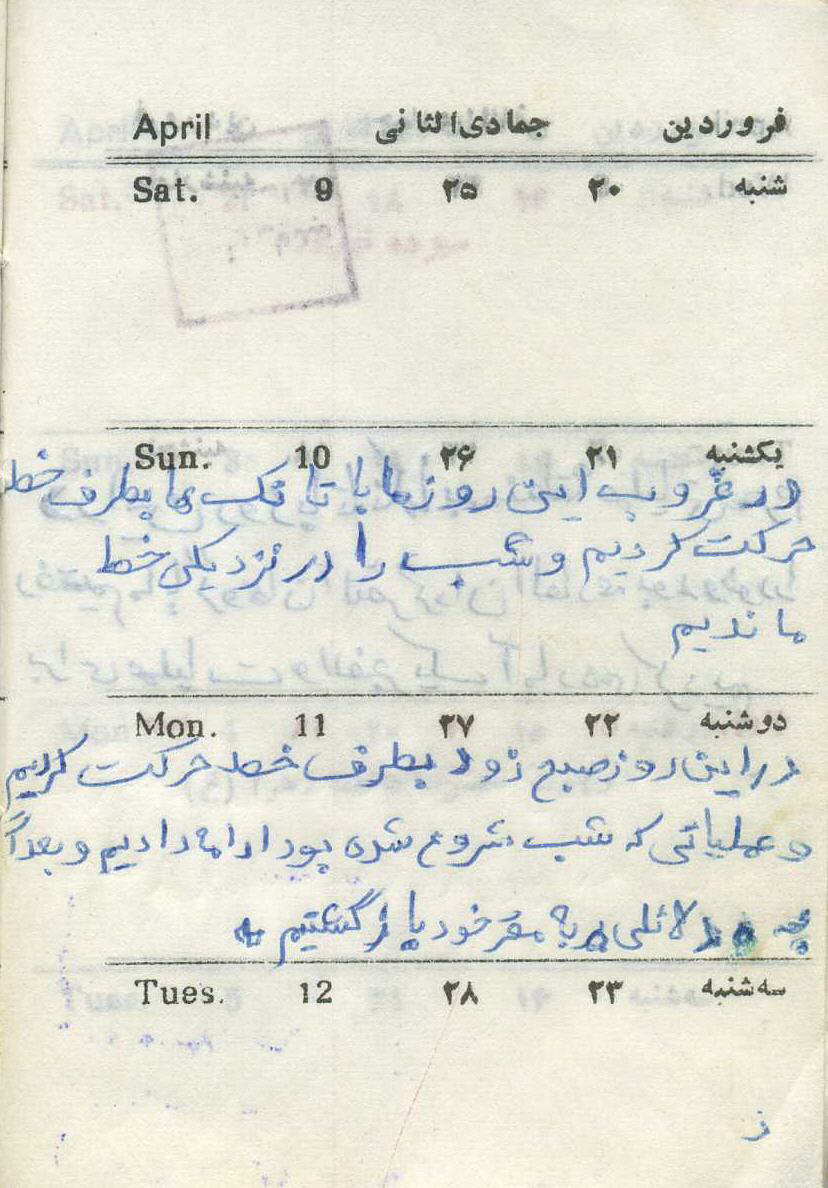 فروردین جمادی‌الثانی April
شنبه ۲۰ ۲۵ 9 Sat.
یکشنبه ۲۱ ۲۶ 10 Sun.
در غروب این روز ما با تانک ها بطرف خط
حرکت کردیم و شب را در نزدیکی خط
ماندیم
دوشنبه ۲۲ ۲۷ 11 Mon.
در این روز صبح زود بطرف خط حرکت کردیم
و عملیاتی که شب شروع شده بود ادامه دادیم و بعداً
به دلائلی به مقر خود بازگشتیم
سه‌شنبه ۲۳ ۲۸ 12 Tues.
ز